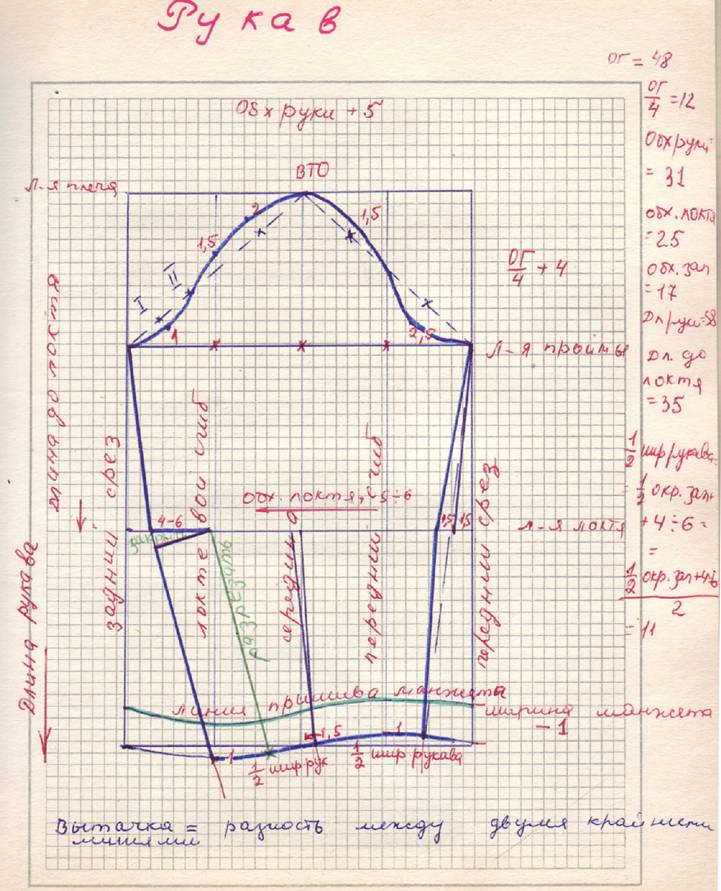 Рукав
ОГ = 48
ОГ/4 = 12
Обх руки + 5
Обхруки
= 31
ВТО
Л-я плеча
обх. локтя
= 25
обх. зап
= 17
Дл руки = 58
Дл. до
локтя
= 35
2
1,5
1,5
I II
ОГ/4 + 4
1
2,5
Л-я проймы
длина до локтя
задний срез
локтевой сгиб
передний сгиб
передний срез
середина
1/2 шир рукава
= 1/2 окр. зап
+ 4÷6 =
=
1/2 окр. зап + 4÷6
2
= 11
обх. локтя, +5÷6
4-6
закрыть
1,5 1,5
л-я локтя
разрезать
Длина рукава
линия пришива манжета
ширина манжета
- 1
1
1,5
1
1/2 шир рук
1/2 шир рукава
Вытачка = разность между двумя крайними
линиями